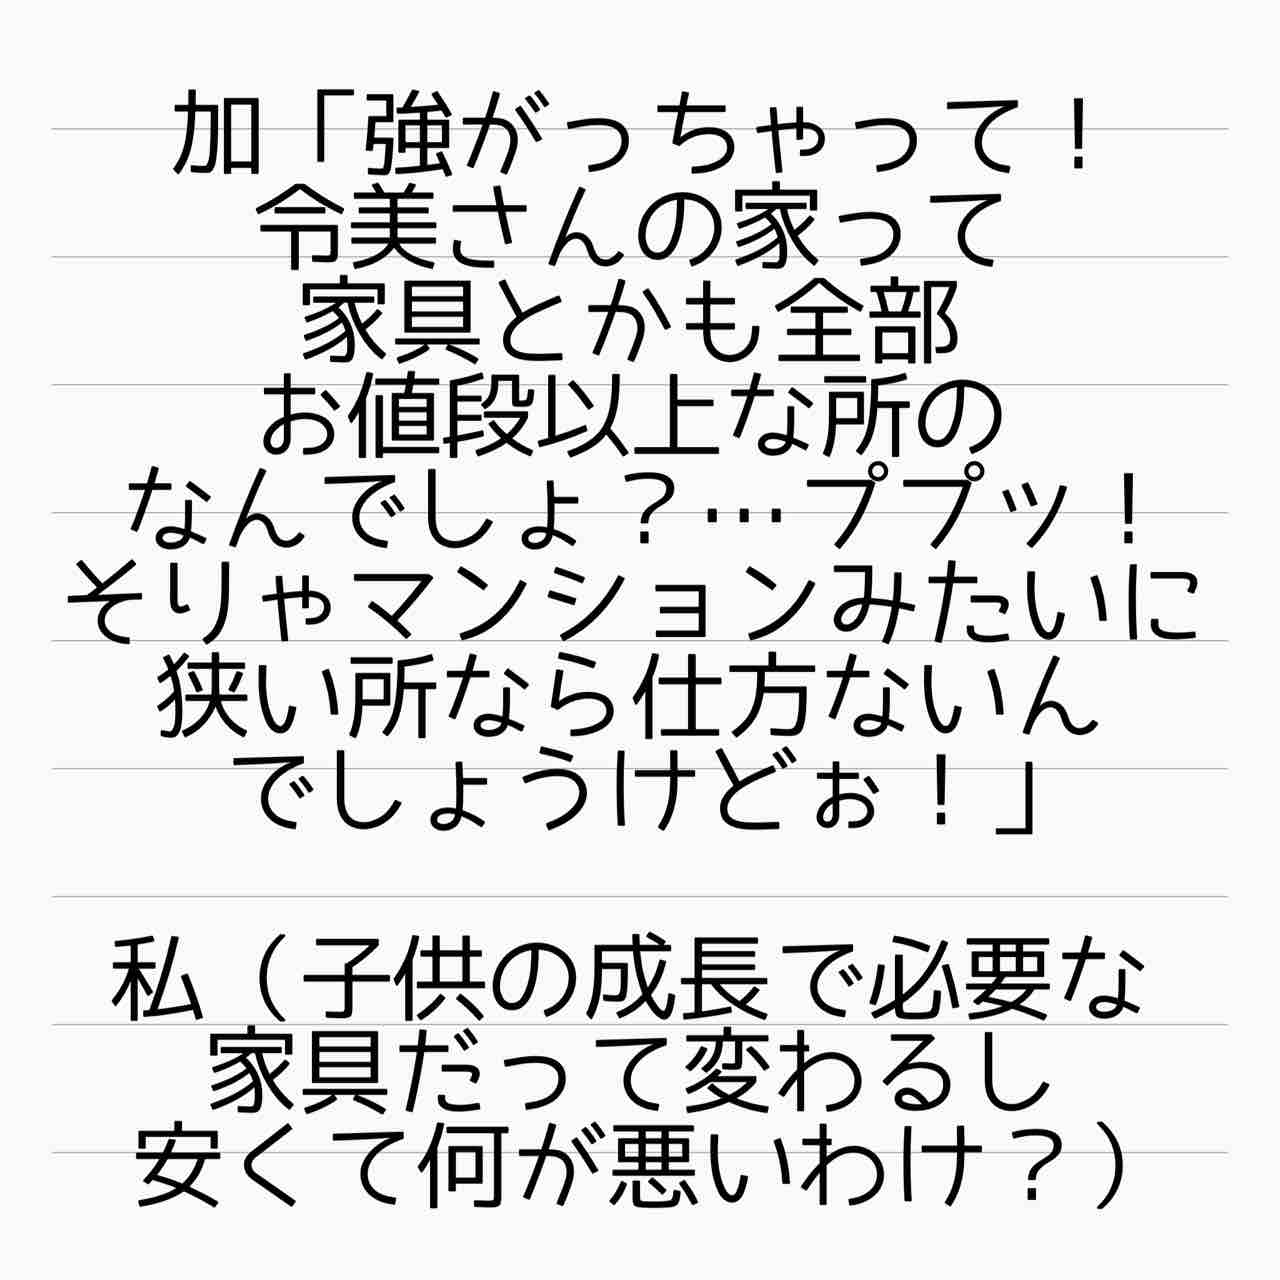 加「強がっちゃって！
令美さんの家って
家具とかも全部
お値段以上な所の
なんでしょ？…ププッ！
そりゃマンションみたいに
狭い所なら仕方ないん
でしょうけどぉ！」
私（子供の成長で必要な
家具だって変わるし
安くて何が悪いわけ？）